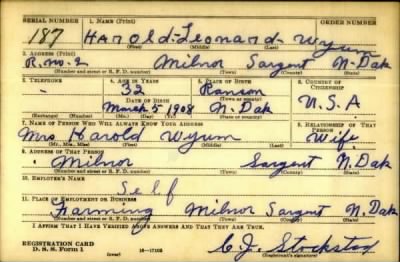 SERIAL NUMBER 1. NAME (Print)
187 Harold Leonard Wyum
(First) (Middle) (Last)
2. ADDRESS (Print)
R. no. 2 Milnor Sargent N. Dak
(Number and street or R. F. D. number) (Town) (County) (State)
3. TELEPHONE 4. AGE IN YEARS 5. PLACE OF BIRTH 6. COUNTRY OF CITIZENSHIP
32 Ransom
DATE OF BIRTH (Town or county)
March 5 1908 N. Dak U.S.A
(Exchange) (No.) (Mo.) (Day) (Yr.) (State or country)
7. NAME OF PERSON WHO WILL ALWAYS KNOW YOUR ADDRESS 8. RELATIONSHIP OF THAT PERSON
Mrs Harold Wyum Wife
(Mr., Mrs., Miss) (First) (Middle) (Last)
9. ADDRESS OF THAT PERSON
Milnor Sargent N. Dak
(Number and street or R. F. D. number) (Town) (County) (State)
10. EMPLOYER'S NAME
Self
11. PLACE OF EMPLOYMENT OR BUSINESS
Farming Milnor Sargent N. Dak
(Number and street or R. F. D. number) (Town) (County) (State)
I AFFIRM THAT I HAVE VERIFIED ABOVE ANSWERS AND THAT THEY ARE TRUE.
REGISTRATION CARD
D. S. S. Form 1 (over) 16—17105
C. J. Stockstad
(Registrant's signature)